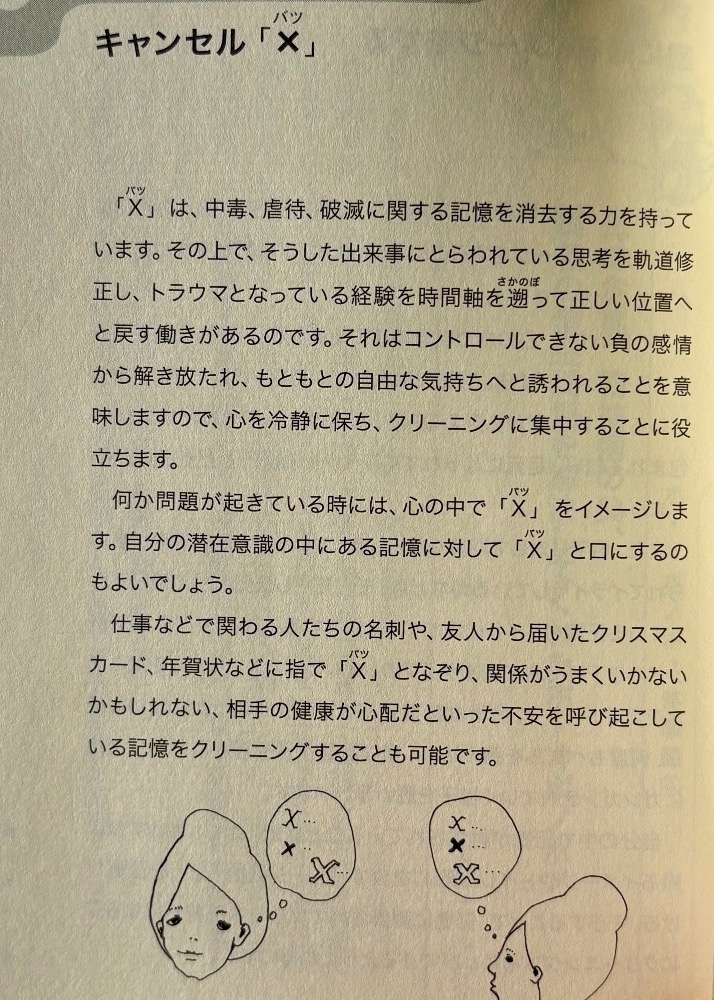 キャンセル「×」
「X」は、中毒、虐待、破滅に関する記憶を消去する力を持って
います。その上で、そうした出来事にとらわれている思考を軌道修
正し、トラウマとなっている経験を時間軸を遡って正しい位置へ
と戻す働きがあるのです。それはコントロールできない負の感情
から解き放たれ、もともとの自由な気持ちへと誘われることを意
味しますので、心を冷静に保ち、クリーニングに集中することに役
立ちます。
何か問題が起きている時には、心の中で「X」をイメージしま
す。自分の潜在意識の中にある記憶に対して「X」と口にするの
もよいでしょう。
仕事などで関わる人たちの名刺や、友人から届いたクリスマス
カード、年賀状などに指で「X」となぞり、関係がうまくいかない
かもしれない、相手の健康が心配だといった不安を呼び起こして
いる記憶をクリーニングすることも可能です。
X…
×…
X…
X…
×…
X…